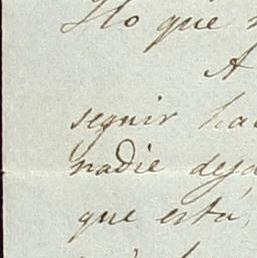 que
A
seguir ha
nadie deja
que está,